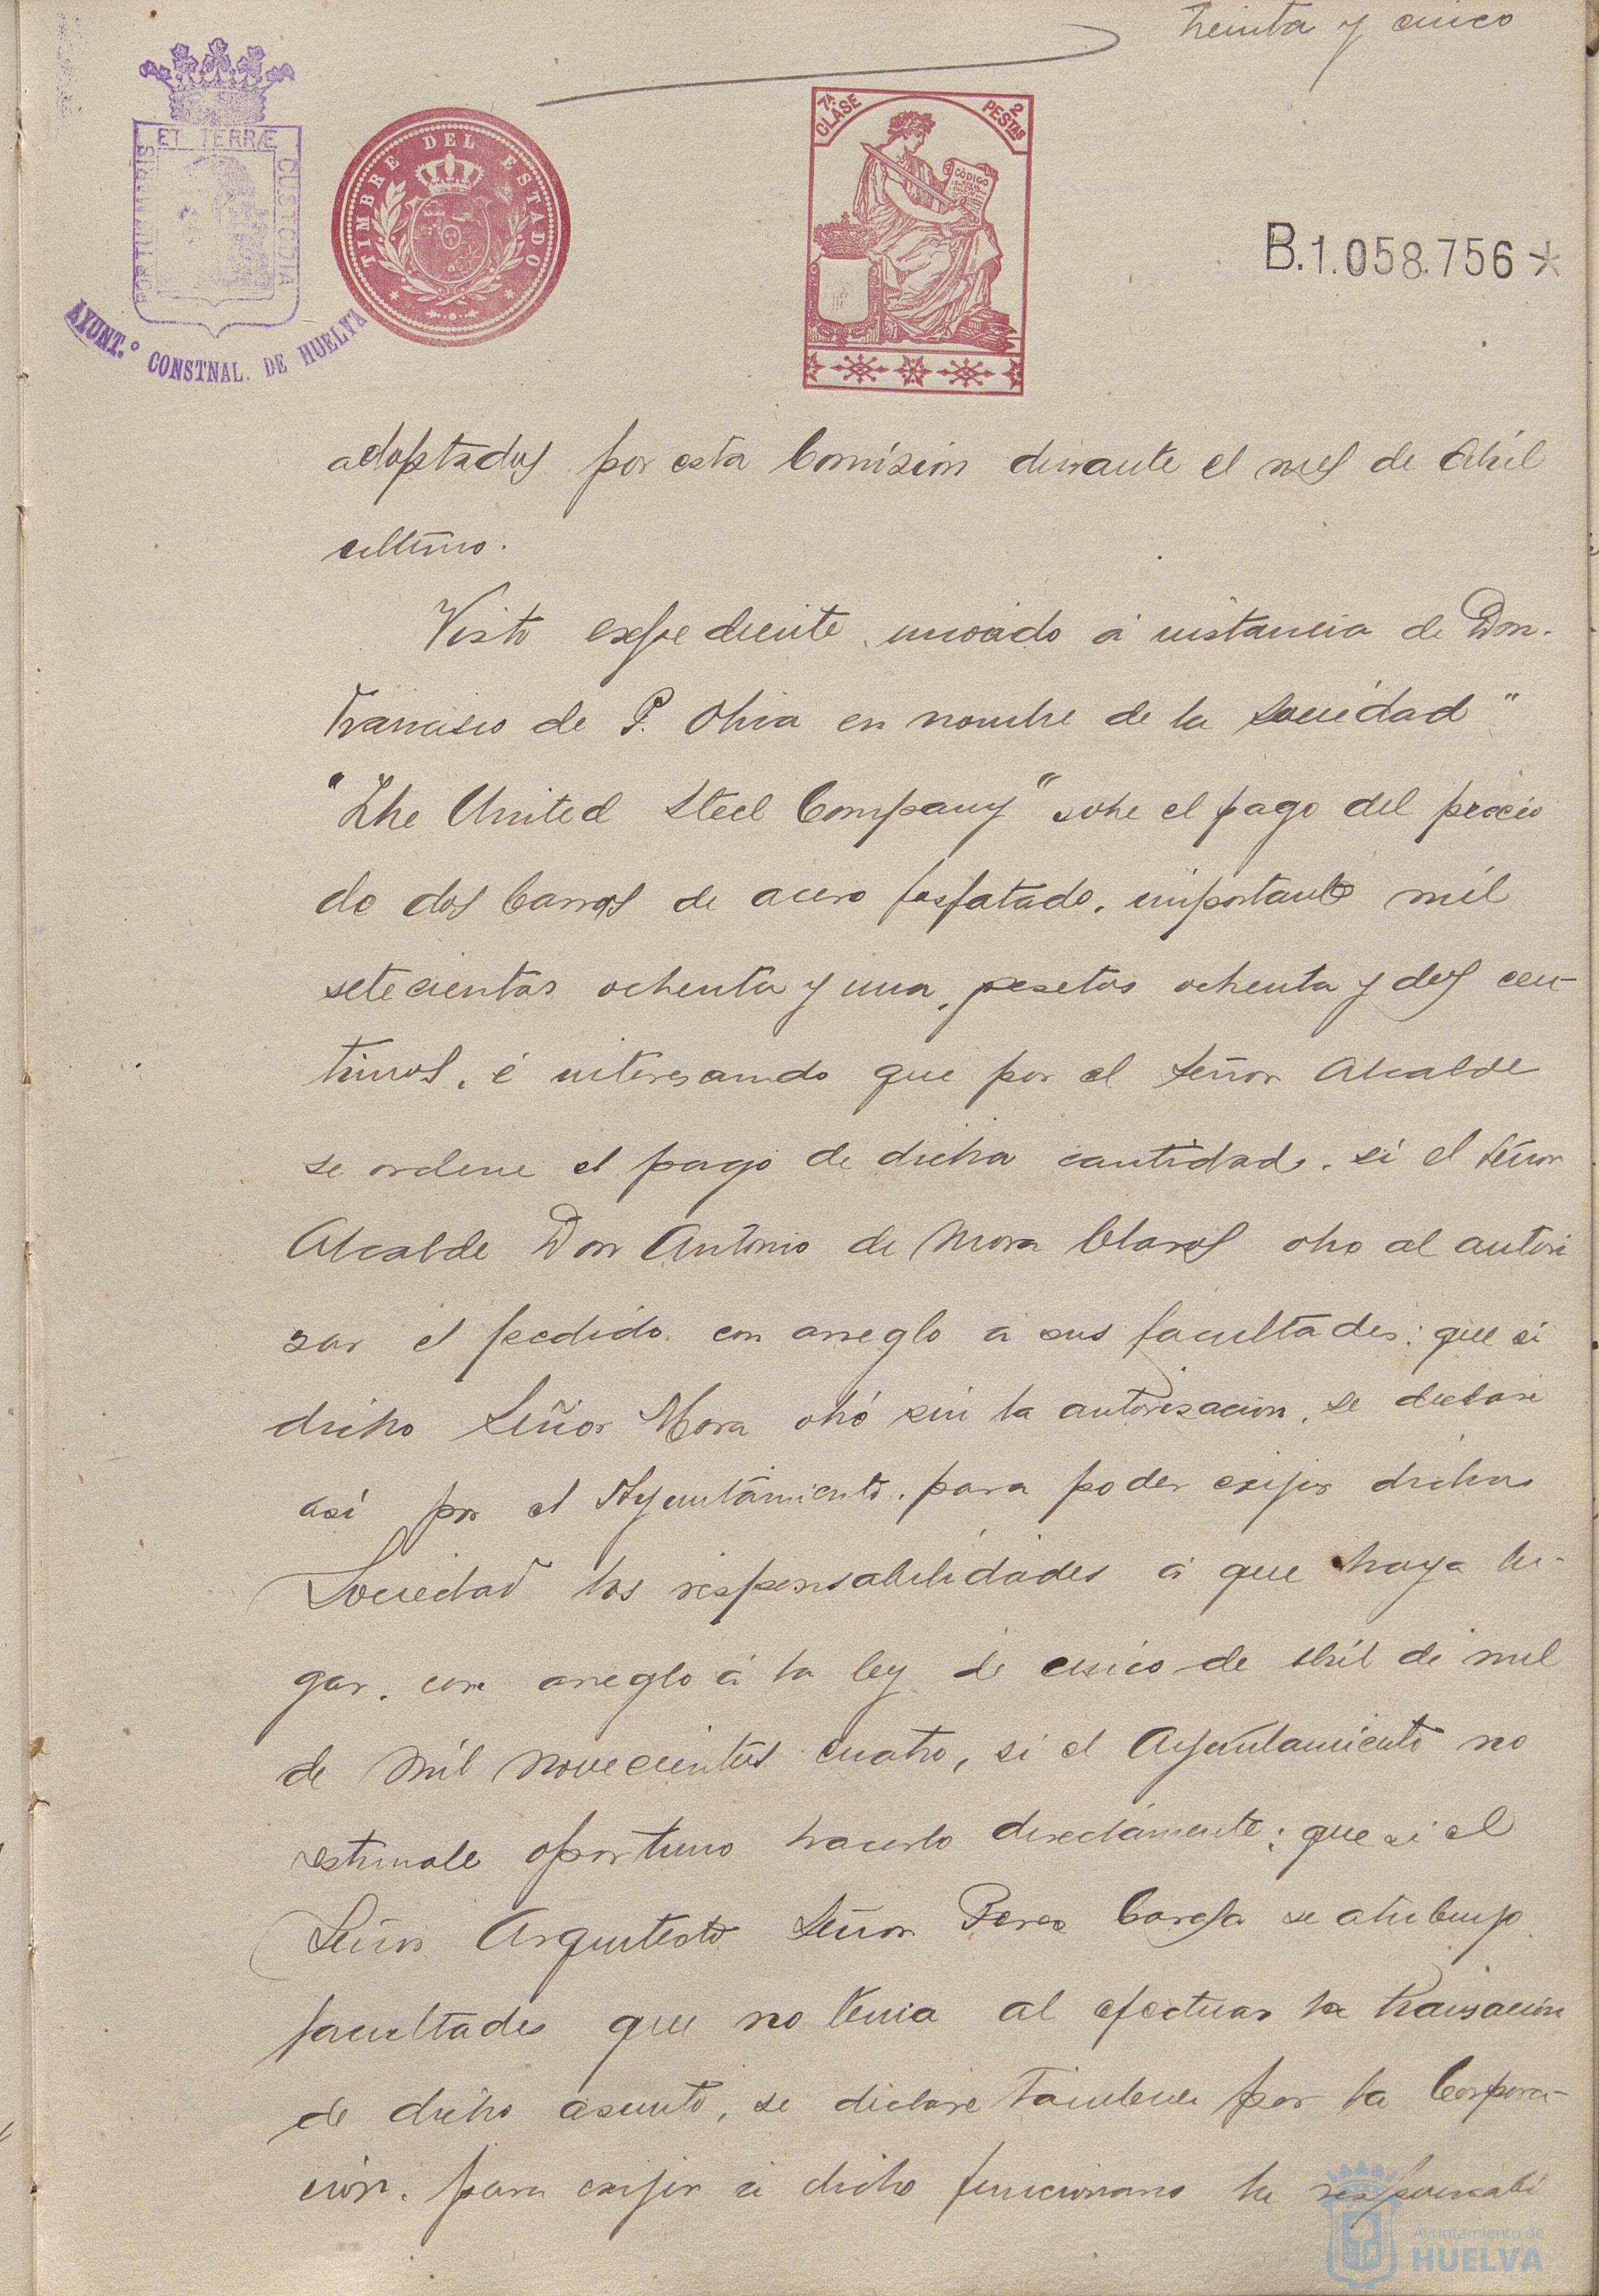 treinta y cinco
ET TERRÆ
PORTUM MARIS
CUSTODIA
AYUNT.º CONSTNAL. DE HUELVA
TIMBRE DEL ESTADO
7ª CLASE
2 PESTAS
CÓDIGO
B.1.058.756*
adoptados por esta Comisión durante el mes de Abril
último.
Visto expediente incoado á instancia de Don
Francisco de P. Oliva en nombre de la sociedad "
"The United Steel Company" sobre el pago del precio
de dos barras de acero fosfatado, importante mil
setecientas ochenta y una pesetas ochenta y dos cen-
timos, é interesando que por el Señor Alcalde
se ordene el pago de dicha cantidad, si el Señor
Alcalde Don Antonio de Mora Claros obro al autori
zar el pedido con arreglo á sus facultades: que si
dicho Señor Mora obró sin la autorización, se declare
así por el Ayuntamiento, para poder exijir dicha
Sociedad las responsabilidades á que haya lu-
gar, con arreglo á la ley de cinco de Abril de mil
de mil novecientos cuatro, si el Ayuntamiento no
estimale oportuno hacerlo directamente; que si el
Señor Arquitecto Señor Perez Carasa se atribuyo
facultades que no tenia al efectuar la transacion
de dicho asunto, se declare tambien por la Corpora-
ción, para exijir á dicho funcionario la responsabi
Ayuntamiento de
HUELVA